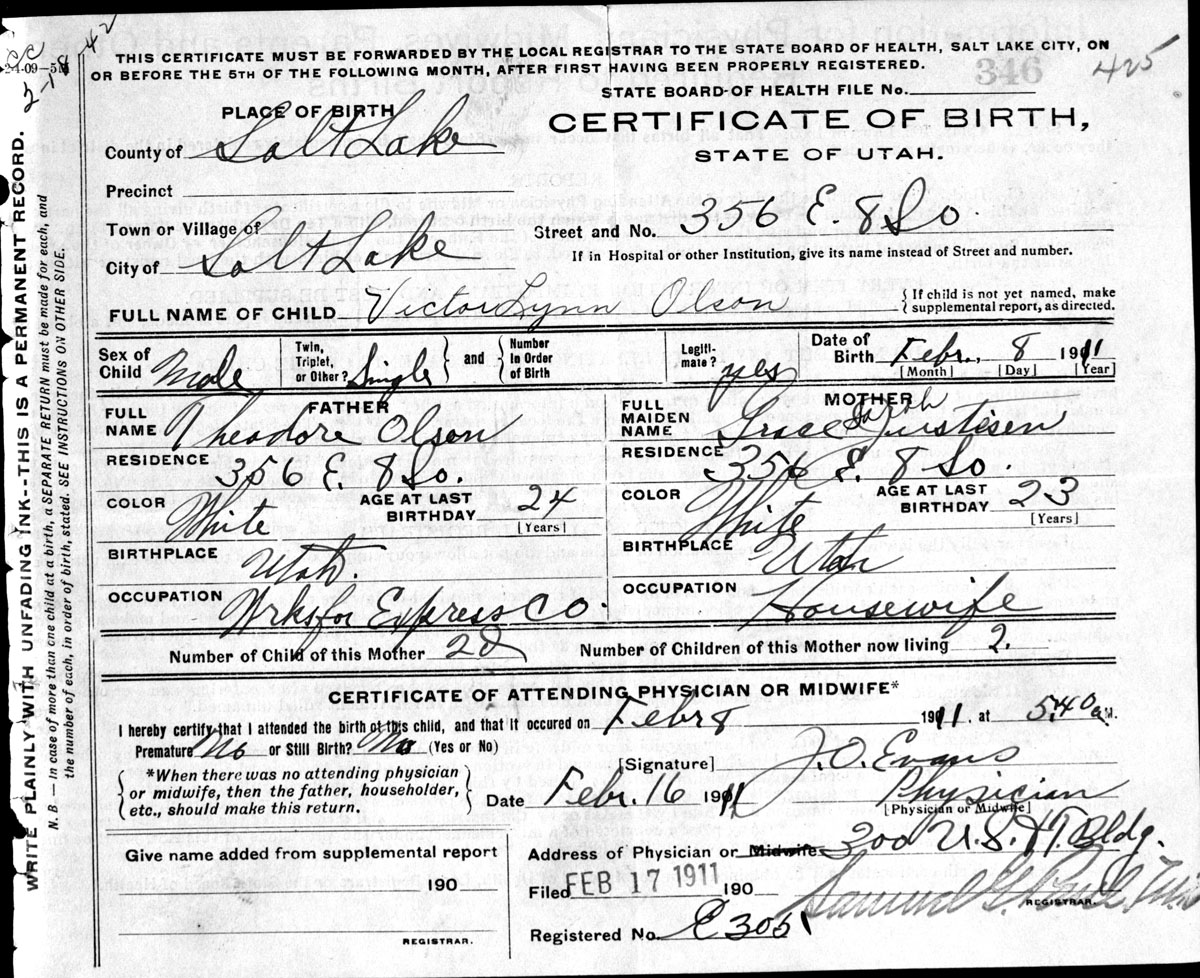 42
2-18
24-09-5M
THIS CERTIFICATE MUST BE FORWARDED BY THE LOCAL REGISTRAR TO THE STATE BOARD OF HEALTH, SALT LAKE CITY, ON
OR BEFORE THE 5TH OF THE FOLLOWING MONTH, AFTER FIRST HAVING BEEN PROPERLY REGISTERED.
346
425
STATE BOARD OF HEALTH FILE No.
PLACE OF BIRTH
CERTIFICATE OF BIRTH,
STATE OF UTAH.
County of Salt Lake
Precinct
Town or Village of
Street and No. 356 E 8 So
City of Salt Lake
If in Hospital or other Institution, give its name instead of Street and number.
FULL NAME OF CHILD Victor Lynn Olson
{ If child is not yet named, make
supplemental report, as directed.
Sex of Child Male
Twin, Triplet, or Other? Single
and
Number in Order of Birth
Legiti- mate? yes
Date of Birth Febr. 8 1911
[Month] [Day] [Year
FATHER
FULL NAME Theodore Olson
RESIDENCE 356 E. 8 So.
COLOR White
AGE AT LAST BIRTHDAY 24
[Years]
BIRTHPLACE Utah.
OCCUPATION Wrks for Express Co.
MOTHER
FULL MAIDEN NAME Grace Sarah Justisen
RESIDENCE 356 E. 8 So.
COLOR White
AGE AT LAST BIRTHDAY 23
[Years]
BIRTHPLACE Utah
OCCUPATION Housewife
Number of Child of this Mother 2d
Number of Children of this Mother now living 2.
CERTIFICATE OF ATTENDING PHYSICIAN OR MIDWIFE*
I hereby certify that I attended the birth of this child, and that it occured on Febr 8 1911. at 5:40 a.M.
Premature No or Still Birth? No (Yes or No)
{ *When there was no attending physician
or midwife, then the father, householder,
etc., should make this return. }
[Signature] J. O. Evans
Physician
Date Febr. 16 1911
[Physician or Midwife]
Address of Physician or Midwife 200 U.S. Bldg.
Give name added from supplemental report
190
REGISTRAR.
Filed FEB 17 1911 190
Samuel G.
REGISTRAR.
Registered No. C 305
WRITE PLAINLY WITH UNFADING INK--THIS IS A PERMANENT RECORD.
N. B. — In case of more than one child at a birth, a SEPARATE RETURN must be made for each, and
the number of each, in order of birth, stated. SEE INSTRUCTIONS ON OTHER SIDE.